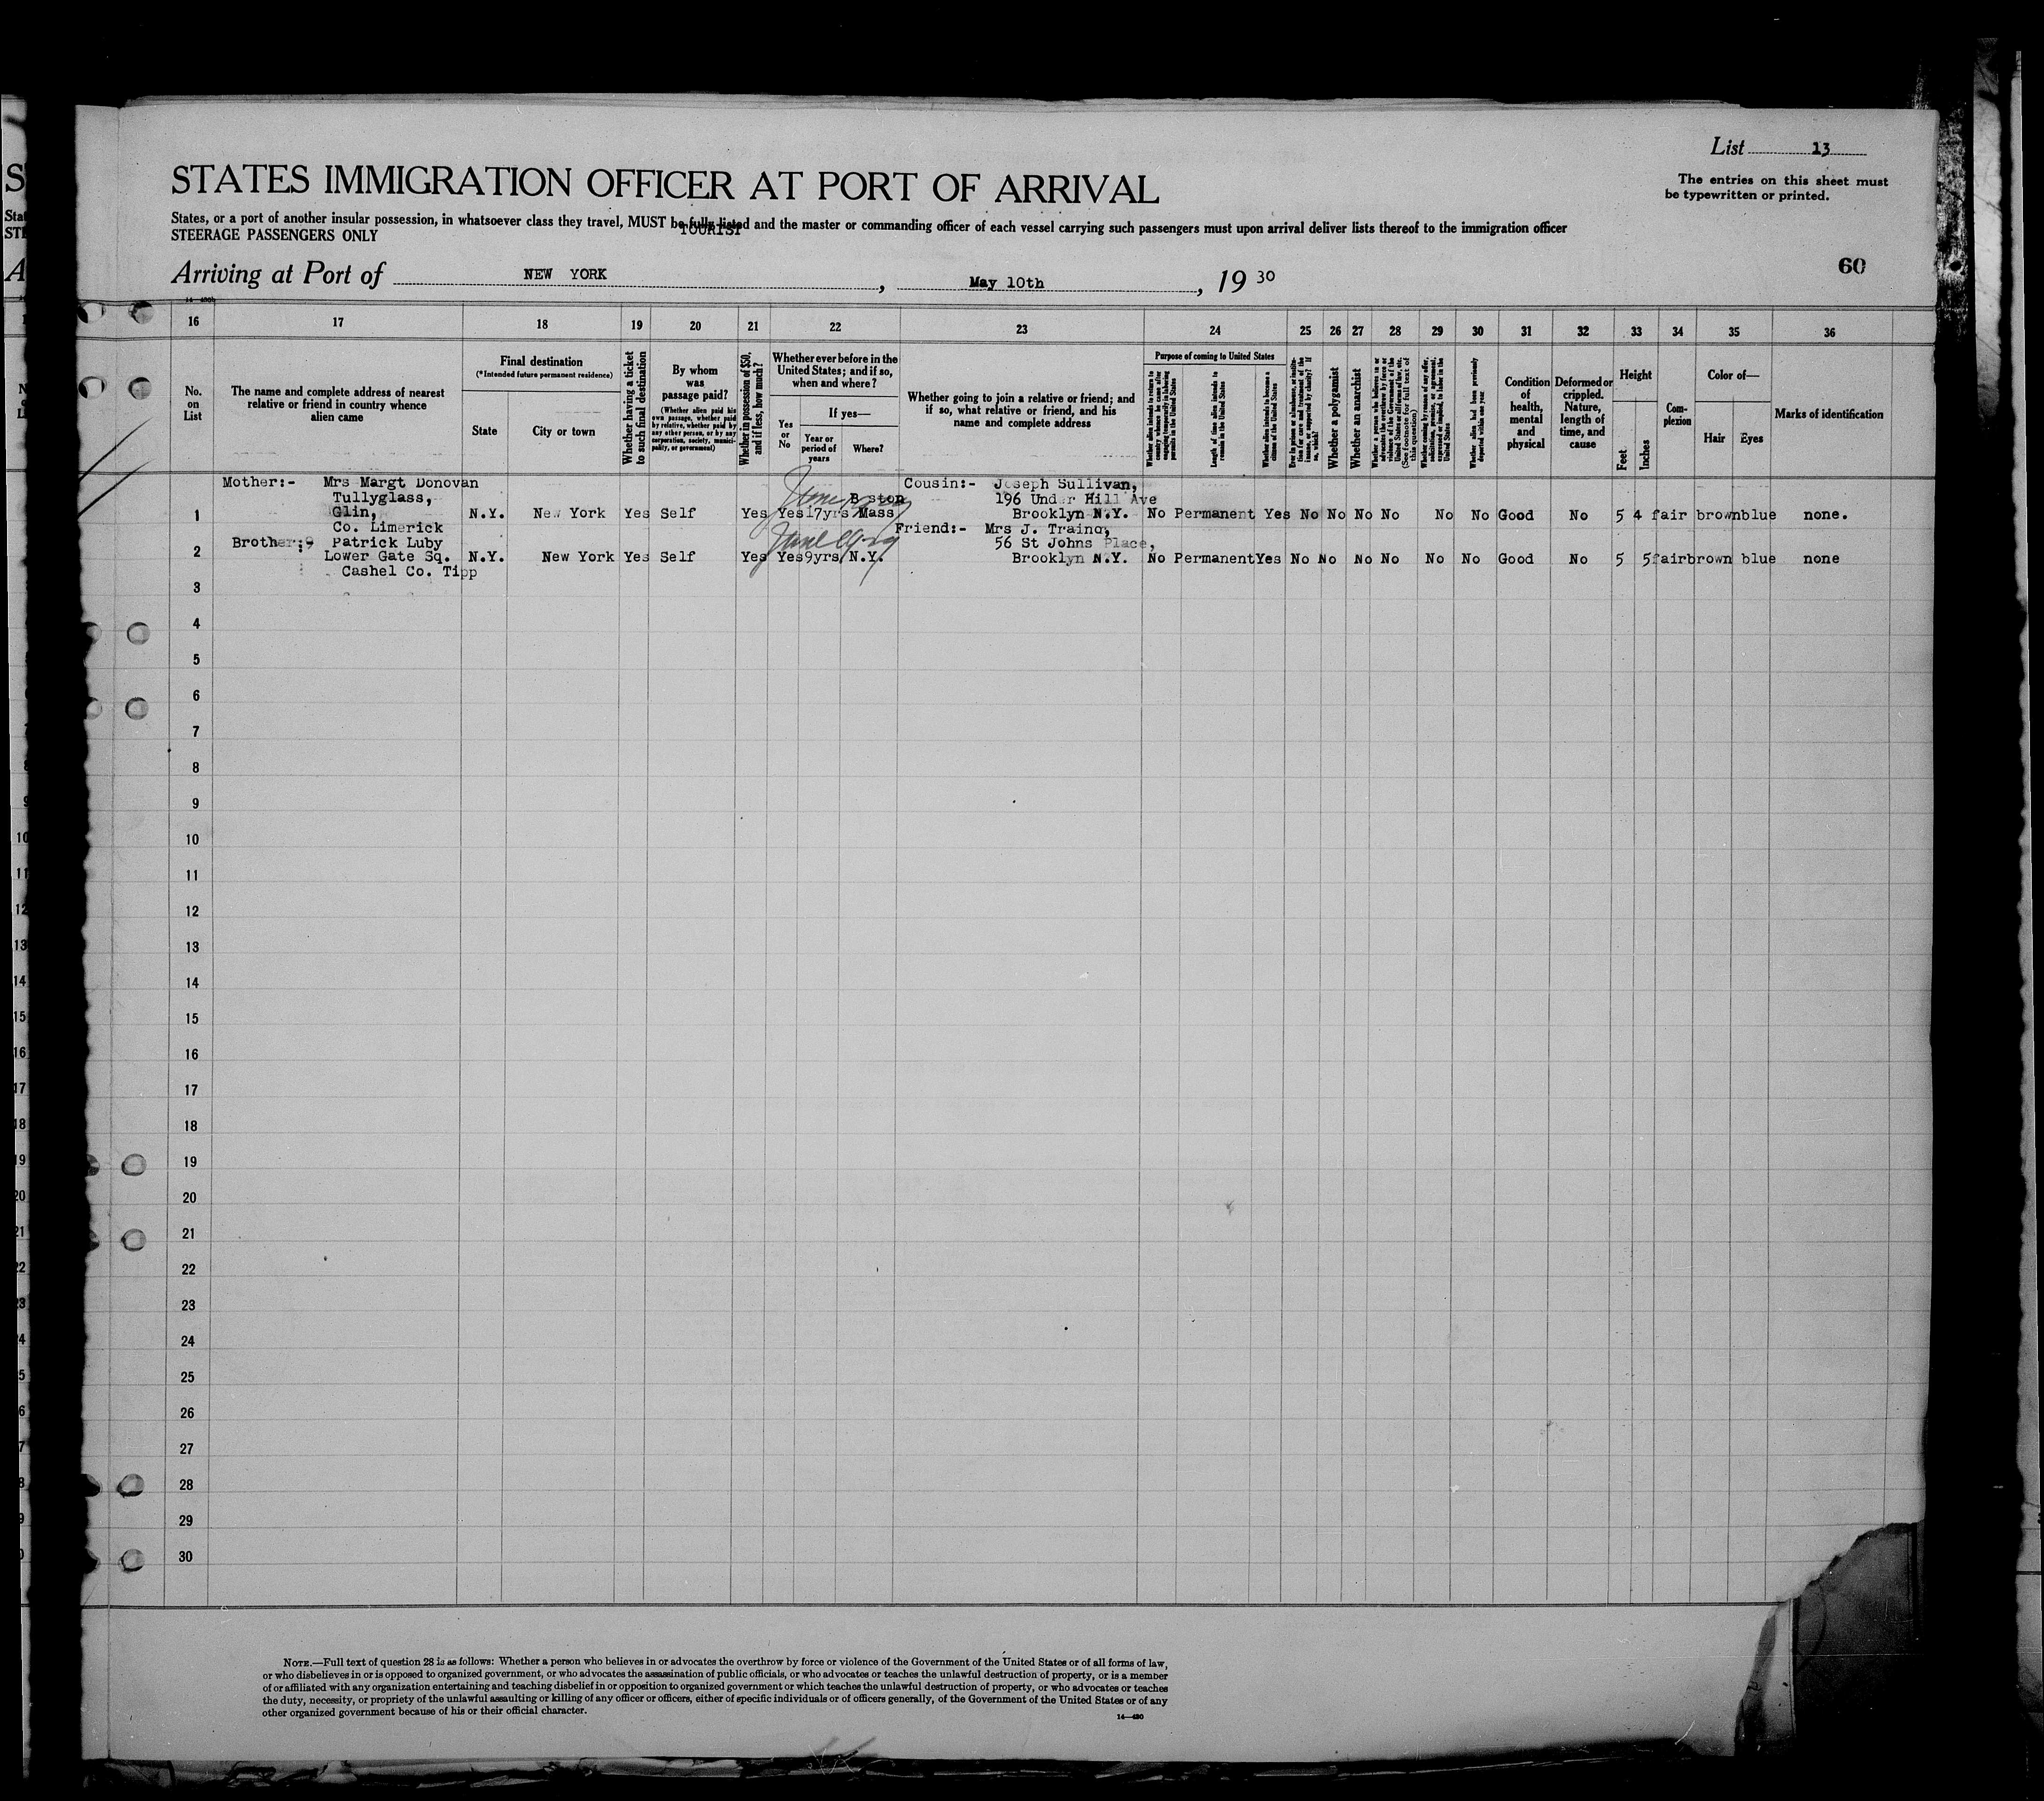 List 13
The entries on this sheet must
be typewritten or printed.
STATES IMMIGRATION OFFICER AT PORT OF ARRIVAL
States, or a port of another insular possession, in whatsoever class they travel, MUST be fully listed and the master or commanding officer of each vessel carrying such passengers must upon arrival deliver lists thereof to the immigration officer
TOURIST
STEERAGE PASSENGERS ONLY
Arriving at Port of NEW YORK, May 10th, 19 30
60
16 17 18 19 20 21 22 23 24 25 26 27 28 29 30 31 32 33 34 35 36
No.
on
List
The name and complete address of nearest
relative or friend in country whence
alien came
Final destination
(*Intended future permanent residence)
State
City or town
Whether having a ticket
to such final destination
By whom
was
passage paid?
(Whether alien paid his
own passage, whether paid
by relative, whether paid by
any other person, or by any
corporation, society, munici-
pality, or government)
Whether in possession of $50,
and if less, how much?
Whether ever before in the
United States; and if so,
when and where?
Yes
or
No
If yes—
Year or
period of
years
Where?
Whether going to join a relative or friend; and
if so, what relative or friend, and his
name and complete address
Purpose of coming to United States
Whether alien intends to return to
country whence he came after
engaging temporarily in laboring
pursuits in the United States
Length of time alien intends to
remain in the United States
Whether alien intends to become a
citizen of the United States
Ever in prison or almshouse, or institu-
tion for care and treatment of the
insane, or supported by charity? If
so, which?
Whether a polygamist
Whether an anarchist
Whether a person who believes in or
advocates the overthrow by force or
violence of the Government of the
United States or all forms of law, etc.
(See footnote for full text of
this question)
Whether coming by reason of any offer,
solicitation, promise, or agreement,
expressed or implied, to labor in the
United States
Whether alien had been previously
deported within one year
Condition
of
health,
mental
and
physical
Deformed or
crippled.
Nature,
length of
time, and
cause
Height
Feet
Inches
Com-
plexion
Color of—
Hair
Eyes
Marks of identification
Mother:- Mrs Margt Donovan
Tullyglass,
Glin,
Co. Limerick
1 N.Y. New York Yes Self Yes Yes 17yrs Mass
Cousin:- Joseph Sullivan,
196 Under Hill Ave
Brooklyn N.Y. No Permanent Yes No No No No No No Good No 5 4 fair brown blue none.
Brother: Patrick Luby
Lower Gate Sq.
Cashel Co. Tipp
2 N.Y. New York Yes Self Yes Yes 9yrs N.Y.
Friend:- Mrs J. Trainor,
56 St Johns Place,
Brooklyn N.Y. No Permanent Yes No No No No No No Good No 5 5 fair brown blue none
3
4
5
6
7
8
9
10
11
12
13
14
15
16
17
18
19
20
21
22
23
24
25
26
27
28
29
30
NOTE.—Full text of question 28 is as follows: Whether a person who believes in or advocates the overthrow by force or violence of the Government of the United States or of all forms of law,
or who disbelieves in or is opposed to organized government, or who advocates the assassination of public officials, or who advocates or teaches the unlawful destruction of property, or is a member
of or affiliated with any organization entertaining and teaching disbelief in or opposition to organized government or which teaches the unlawful destruction of property, or who advocates or teaches
the duty, necessity, or propriety of the unlawful assaulting or killing of any officer or officers, either of specific individuals or of officers generally, of the Government of the United States or of any
other organized government because of his or their official character.
14—430